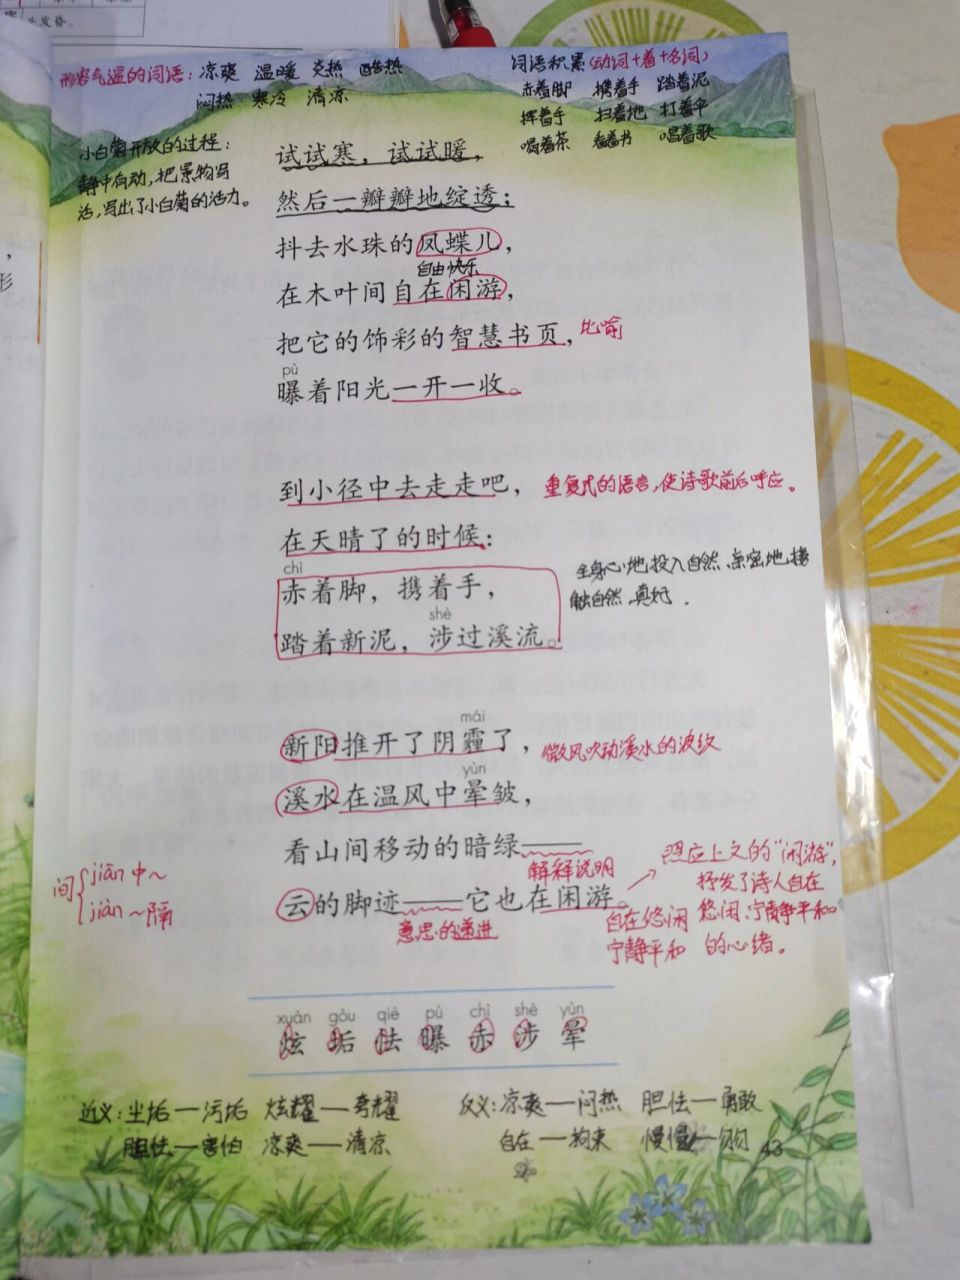 形容气温的词语：凉爽 温暖 炎热 酷热
闷热 寒冷 清凉
词语积累(动词+着+名词)
赤着脚 携着手 踏着泥
挥着手 扫着地 打着伞
喝着茶 看着书 唱着歌
小白菊开放的过程：
静中有动，把景物写
活，写出了小白菊的活力。
试试寒，试试暖，
然后一瓣瓣地绽透；
抖去水珠的凤蝶儿，
自由快乐
在木叶间自在闲游，
把它的饰彩的智慧书页，比喻
pù
曝着阳光一开一收。
到小径中去走走吧，重复式的语言，使诗歌前后呼应。
在天晴了的时候：
chì
赤着脚，携着手，
全身心地投入自然、亲密地接
触自然、真好.
shè
踏着新泥，涉过溪流。
mái
新阳推开了阴霾了，
微风吹动溪水的波纹
yùn
溪水在温风中晕皱，
看山间移动的暗绿——
解释说明
云的脚迹——它也在闲游。
意思的递进
照应上文的“闲游”，
抒发了诗人自在
悠闲、宁静平和
的心绪。
自在悠闲
宁静平和
间 jiān 中~
jiàn ~隔
xuàn gòu qiè pù chì shè yùn
炫 垢 怯 曝 赤 涉 晕
近义：尘垢—污垢 炫耀—夸耀
胆怯—害怕 凉爽—清凉
反义：凉爽—闷热 胆怯—勇敢
自在—拘束 慢慢—匆匆
43
形